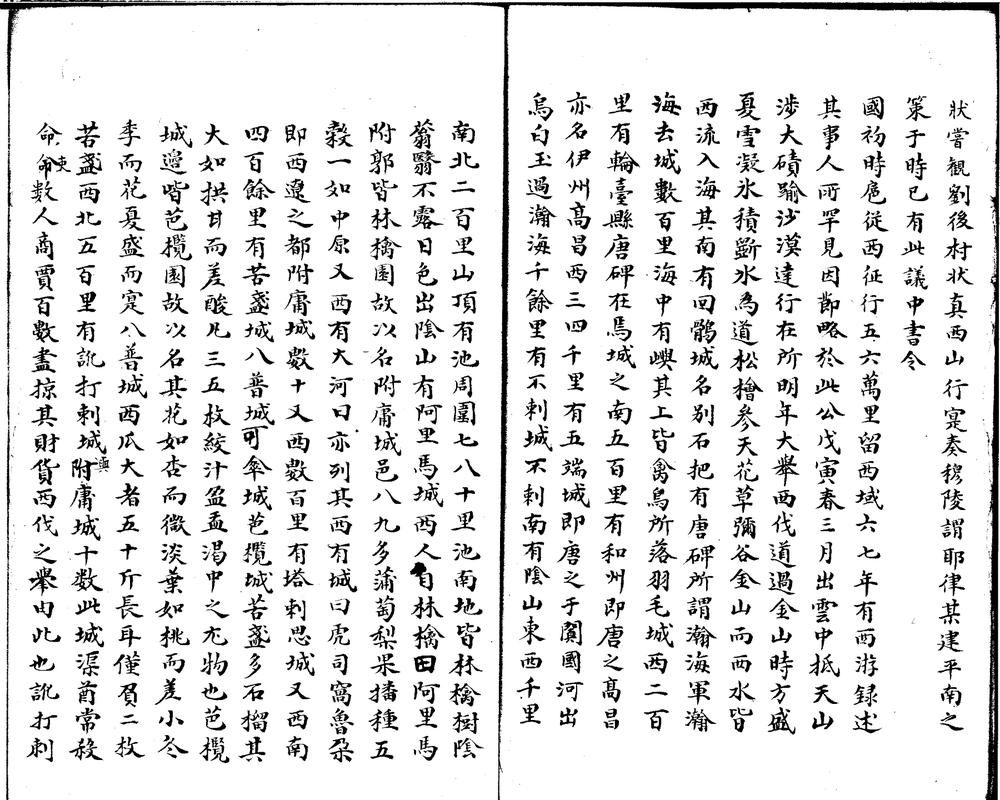 狀嘗觀劉後村狀真西山行寔奏穆陵謂耶律某建平南之
策于時已有此議中書令
國初時扈從西征行五六萬里留西域六七年有西游録述
其事人所罕見因節略於此公戊寅春三月出雲中抵天山
涉大磧踰沙漠達行在所明年大舉西伐道過金山時方盛
夏雪凝氷積斵氷為道松檜參天花草彌谷金山而西水皆
西流入海其南有囘鶻城名别石把有唐碑所謂瀚海軍瀚
海去城數百里海中有嶼其上皆禽鳥所落羽毛城西二百
里有輪臺縣唐碑在焉城之南五百里有和州即唐之髙昌
亦名伊州髙昌西三四千里有五端城即唐之于闐國河出
烏白玉過瀚海千餘里有不剌城不剌南有陰山東西千里
南北二百里山頂有池周圍七八十里池南地皆林檎樹陰
蓊翳不露日色出陰山有阿里馬城西人目林檎田阿里馬
附郭皆林檎園故以名附庸城邑八九多蒲萄梨果播種五
穀一如中原又西有大河曰亦列其西有城曰虎司窩魯朶
即西遼之都附庸城數十又西數百里有塔剌思城又西南
四百餘里有苦盞城八普城可傘城芭欖城苦盞多石榴其
大如拱甘而差酸凡三五枚絞汁盈盂渴中之尤物也芭欖
城邊皆芭欖園故以名其花如杏而微淡葉如桃而差小冬
季而花夏盛而寔八普城西瓜大者五十斤長耳僅負二枚
苦盞西北五百里有訛打剌城附庸城十數此城渠酋常殺
命吏數人商賈百數盡掠其財貨西伐之舉由此也訛打剌